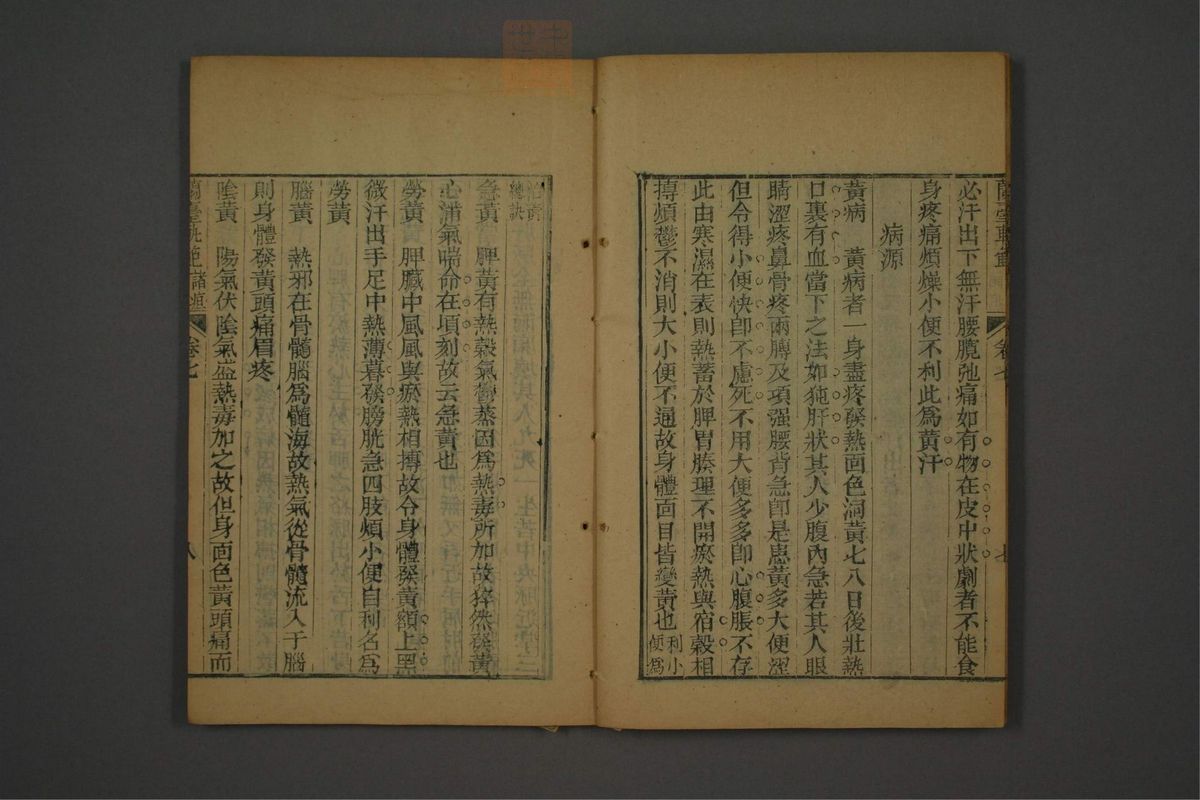 必汗出下無汗腰髖弛痛如有物在皮中狀劇者不能食
身疼痛煩燥小便不利此爲黃汗
病源
黃病　黃病者一身盡疼發熱面色洞黃七八日後壯熱
口裏有血當下之法如㹠肝狀其人少腹內急若其人眼
睛澀疼鼻骨疼兩膊及項强腰背急卽是患黃多大便澀
但令得小便快卽不慮死不用大便多多卽心腹脹不存
此由寒濕在表則熱蓄於脾胃腠理不開瘀熱與宿穀相
搏煩鬱不消則大小便不通故身體面目皆變黃也
利小
便爲
治黃
總訣
急黃　脾黃有熱穀氣鬱蒸因爲熱毒所加故猝然發黃
心滿氣喘命在頃刻故云急黃也
勞黃　脾臟中風風與瘀熱相搏故令身體發黃額上黑
微汗出手足中熱薄暮發膀胱急四肢煩小便自利名爲
勞黃
腦黃　熱邪在骨髓腦爲髓海故熱氣從骨髓流入于腦
則身體發黃頭痛眉疼
陰黃　陽氣伏陰氣盛熱毒加之故但身面色黃頭痛而
卷七
八
卷七
七